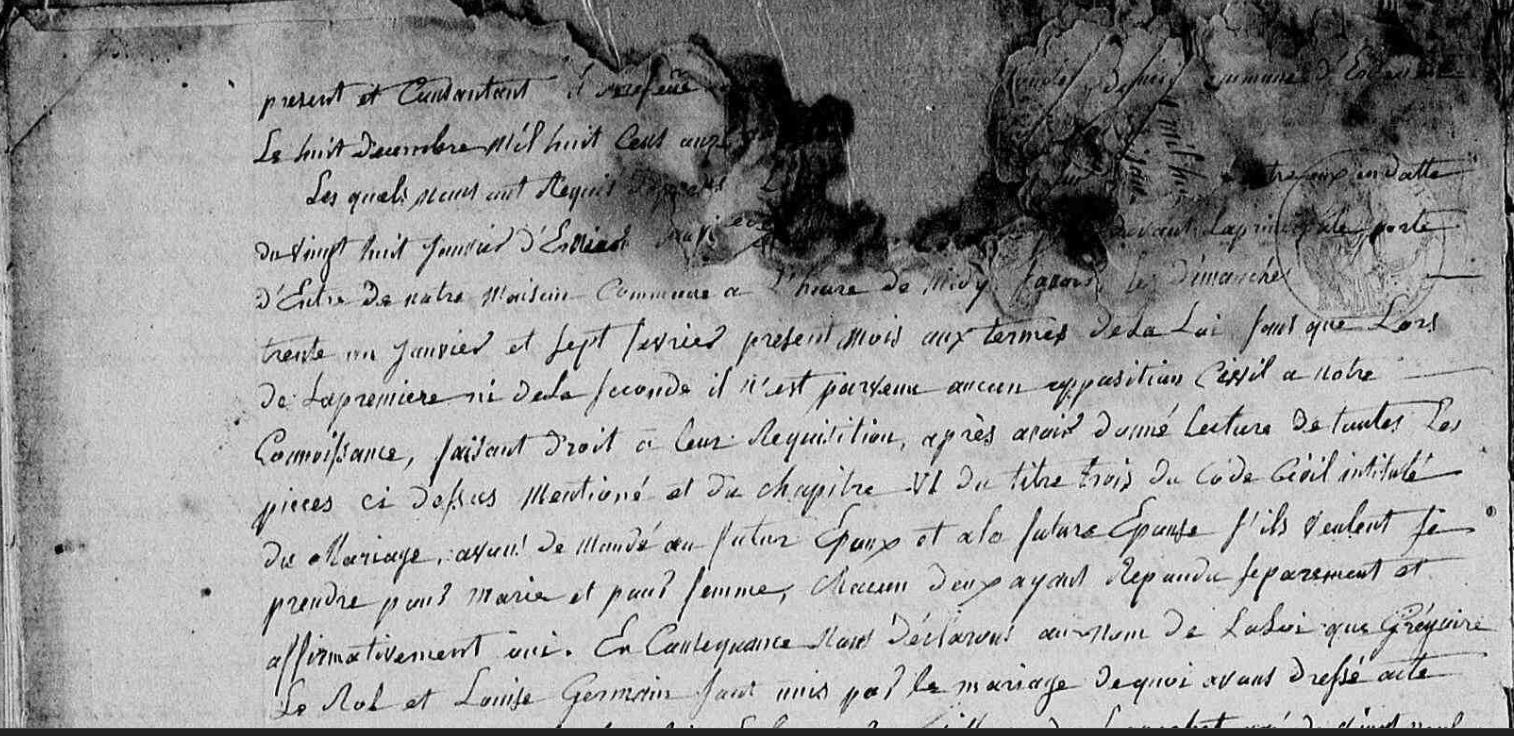 present et Consantant
Le huit Decembre Mil huit Cens onze
Les quels nous ont Requis entre eux en datte
du Vingt huit Janvier devant la principale porte
d'Entre De notre Maison Commune a l'heure de Midy Savoir le Dimanche
trente un Janvier et Sept fevrier present Mois aux termes De La Loi sans que Lors
de La premiere ni de La Seconde il n'est parvenu aucun opposition Civil a Notre
Connoissance, faisant Droit a leur Requisition, après avoir Donné Lecture De toutes Les
pieces ci dessus Mentioné et Du chapitre VI du titre trois Du Code Civil intitulé
du Mariage, avons De Mandé au futur Epoux et a la future Epouse s'ils veulent se
prendre pour Marie et pour femme, Chacun Deux ayant Repondu Separement et
affirmativement oui. En Consequance Nous Déclarons au Nom De La Loi que Grégoire
Le Rol et Louise Germain Sont unis par le mariage De quoi avons Dressé acte